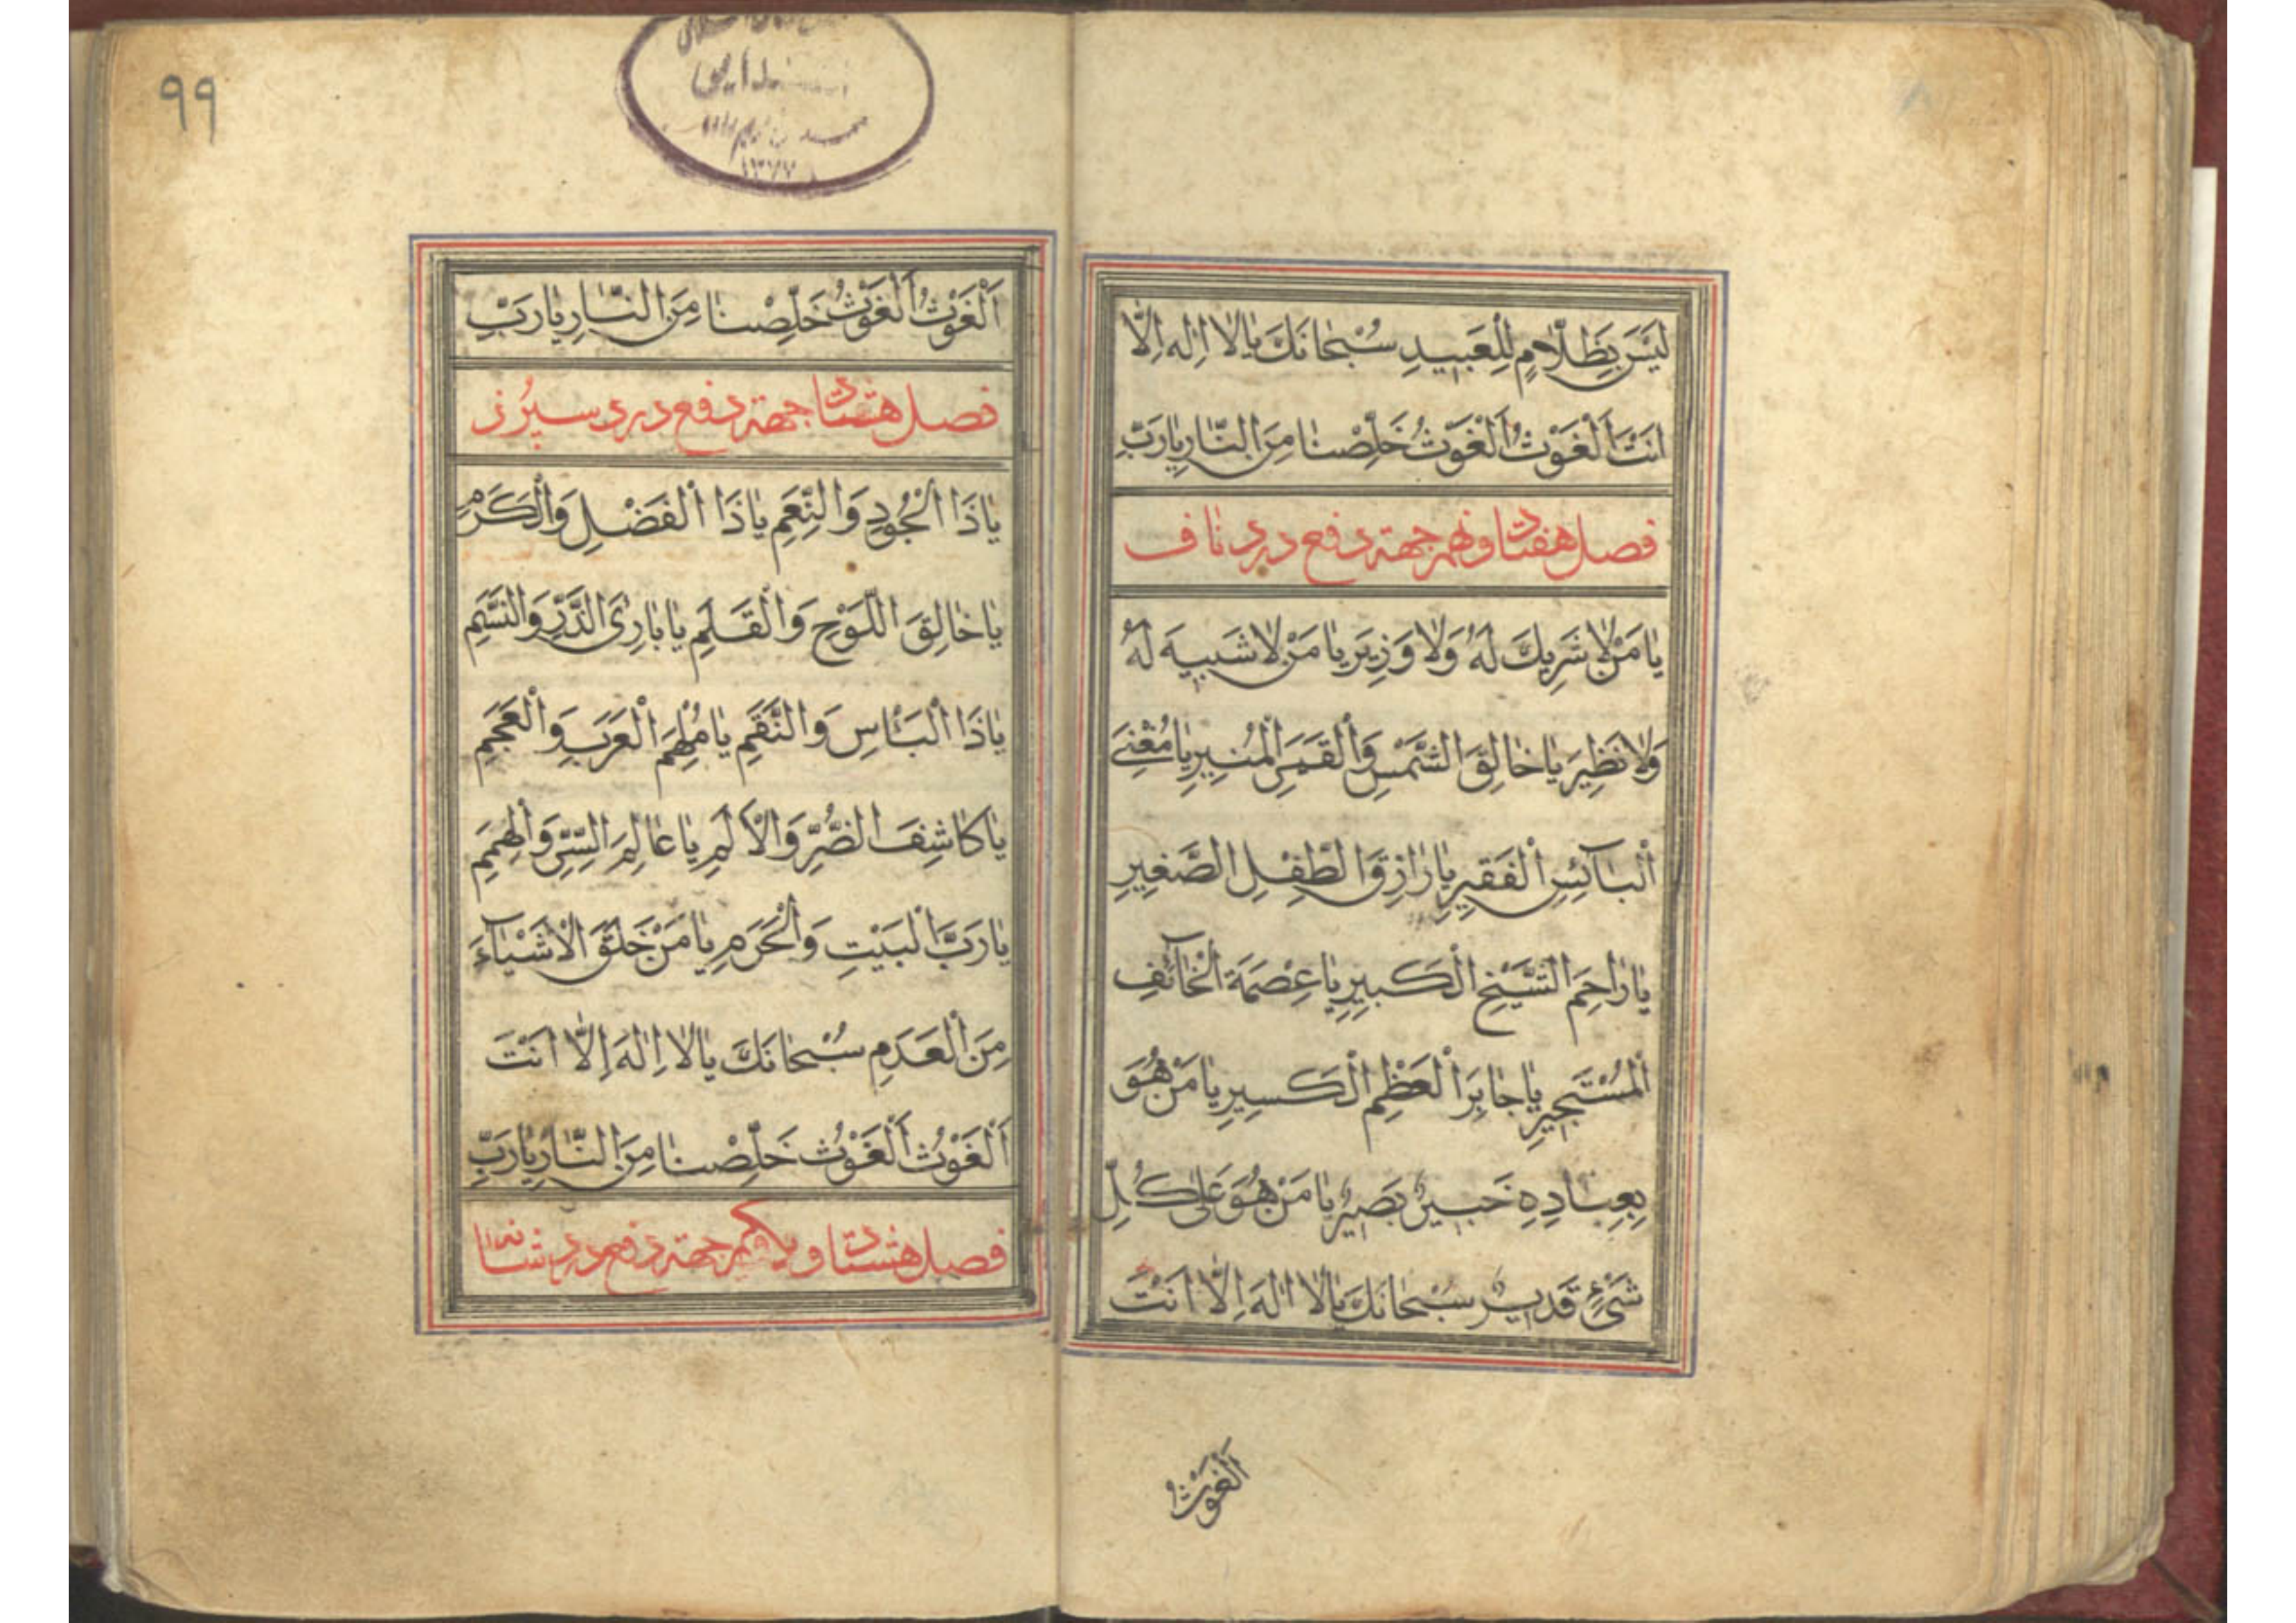 لَيْسَ بِظَلّٰامٍ لِلْعَبيدِ سُبْحٰانَكَ يٰا لٰا اِلٰهَ اِلّٰا
اَنْتَ اَلْغَوْثُ اَلْغَوْثُ خَلِّصْنٰا مِنَ النّٰارِ يٰا رَبِّ
فصل هفتاد و نهم جهة دفع درد ناف
يٰا مَنْ لٰا شَرِيكَ لَهُ وَلٰا وَزِيرَ يٰا مَنْ لٰا شَبيهَ لَهُ
وَلٰا نَظِيرَ يٰا خٰالِقَ الشَّمْسِ وَالْقَمَرِ الْمُنيرِ يٰا مُغْنِيَ
اَلْبٰآئِسِ الْفَقيرِ يٰا رٰازِقَ الطِّفْلِ الصَّغيرِ
يٰا رٰاحِمَ الشَّيْخِ الْكَبيرِ يٰا عِصْمَةَ الْخٰآئِفِ
اَلْمُسْتَجيرِ يٰا جٰابِرَ الْعَظْمِ الْكَسيرِ يٰا مَنْ هُوَ
بِعِبٰادِهِ خَبيرٌ بَصيرٌ يٰا مَنْ هُوَ عَلىٰ كُلِّ
شَيْءٍ قَديرٌ سُبْحٰانَكَ يٰا لٰا اِلٰهَ اِلّٰا اَنْتَ
اَلْغَوْثُ
٩٩
١٣٧٧
اَلْغَوْثُ اَلْغَوْثُ خَلِّصْنٰا مِنَ النّٰارِ يٰا رَبِّ
فصل هشتاد جهة دفع درد سپرز
يٰا ذَا الْجُودِ وَالنِّعَمِ يٰا ذَا الْفَضْلِ وَالْكَرَمِ
يٰا خٰالِقَ اللَّوْحِ وَالْقَلَمِ يٰا بٰارِئَ الذَّرِّ وَالنَّسَمِ
يٰا ذَا الْبَأْسِ وَالنَّقَمِ يٰا مُلْهِمَ الْعَرَبِ وَالْعَجَمِ
يٰا كٰاشِفَ الضُّرِّ وَالْاَلَمِ يٰا عٰالِمَ السِّرِّ وَالْهِمَمِ
يٰا رَبَّ الْبَيْتِ وَالْحَرَمِ يٰا مَنْ خَلَقَ الْاَشْيٰآءَ
مِنَ الْعَدَمِ سُبْحٰانَكَ يٰا لٰا اِلٰهَ اِلّٰا اَنْتَ
اَلْغَوْثُ اَلْغَوْثُ خَلِّصْنٰا مِنَ النّٰارِ يٰا رَبِّ
فصل هشتاد و يكم جهة دفع درد شانه